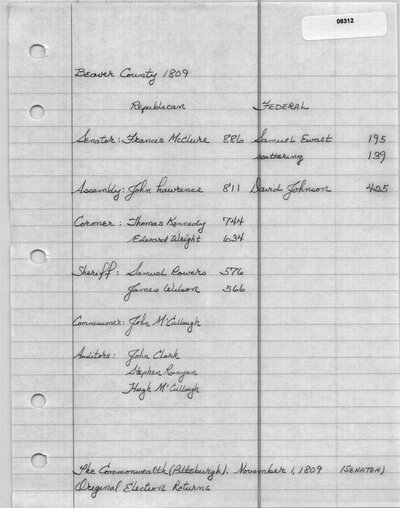 06312
Beaver County 1809
Republican FEDERAL
Senator: Francis McClure 886 Samuel Ewalt 195
scattering 139
Assembly: John Lawrence 811 David Johnson 425
Coroner: Thomas Kennedy 744
Edward Wright 634
Sheriff: Samuel Powers 576
James Wilson 566
Commissioner: John McCullough
Auditors: John Clark
Stephen Runyan
Hugh McCullough
The Commonwealth (Pittsburgh). November 1, 1809 (SENATOR)
Original Election Returns